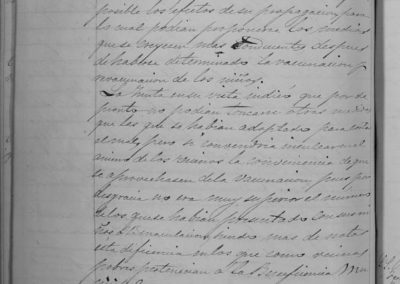 posible los efectos de su propagacion, para
lo cual podian proponerse los medios
que se creyesen mas convenientes despues
de haberse determinado la vacunacion y
revacunacion de los niños.
La Junta en su vista indicó que por de
pronto no podian tomarse otras medidas
que las que se habian adoptado para evitar
el mal, pero si convendria inculcar en el
animo de los vecinos la conveniencia de que
se aprovechasen de la vacunacion, pues por
desgracia no era muy superior el numero
de los que se habian presentado con sus ni
ños á la inoculacion, siendo mas de notar
esta deficiencia en los que como vecinos
pobres pertenecian á la Beneficencia Mu